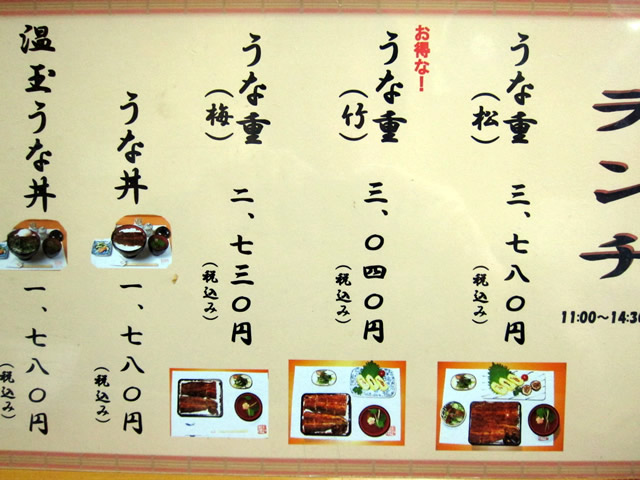 ランチ
11:00～14:30
うな重（松） 三、七八〇円（税込み）
お得な！
うな重（竹） 三、〇四〇円（税込み）
うな重（梅） 二、七三〇円（税込み）
うな丼 一、七八〇円（税込み）
温玉うな丼 一、七八〇円（税込み）